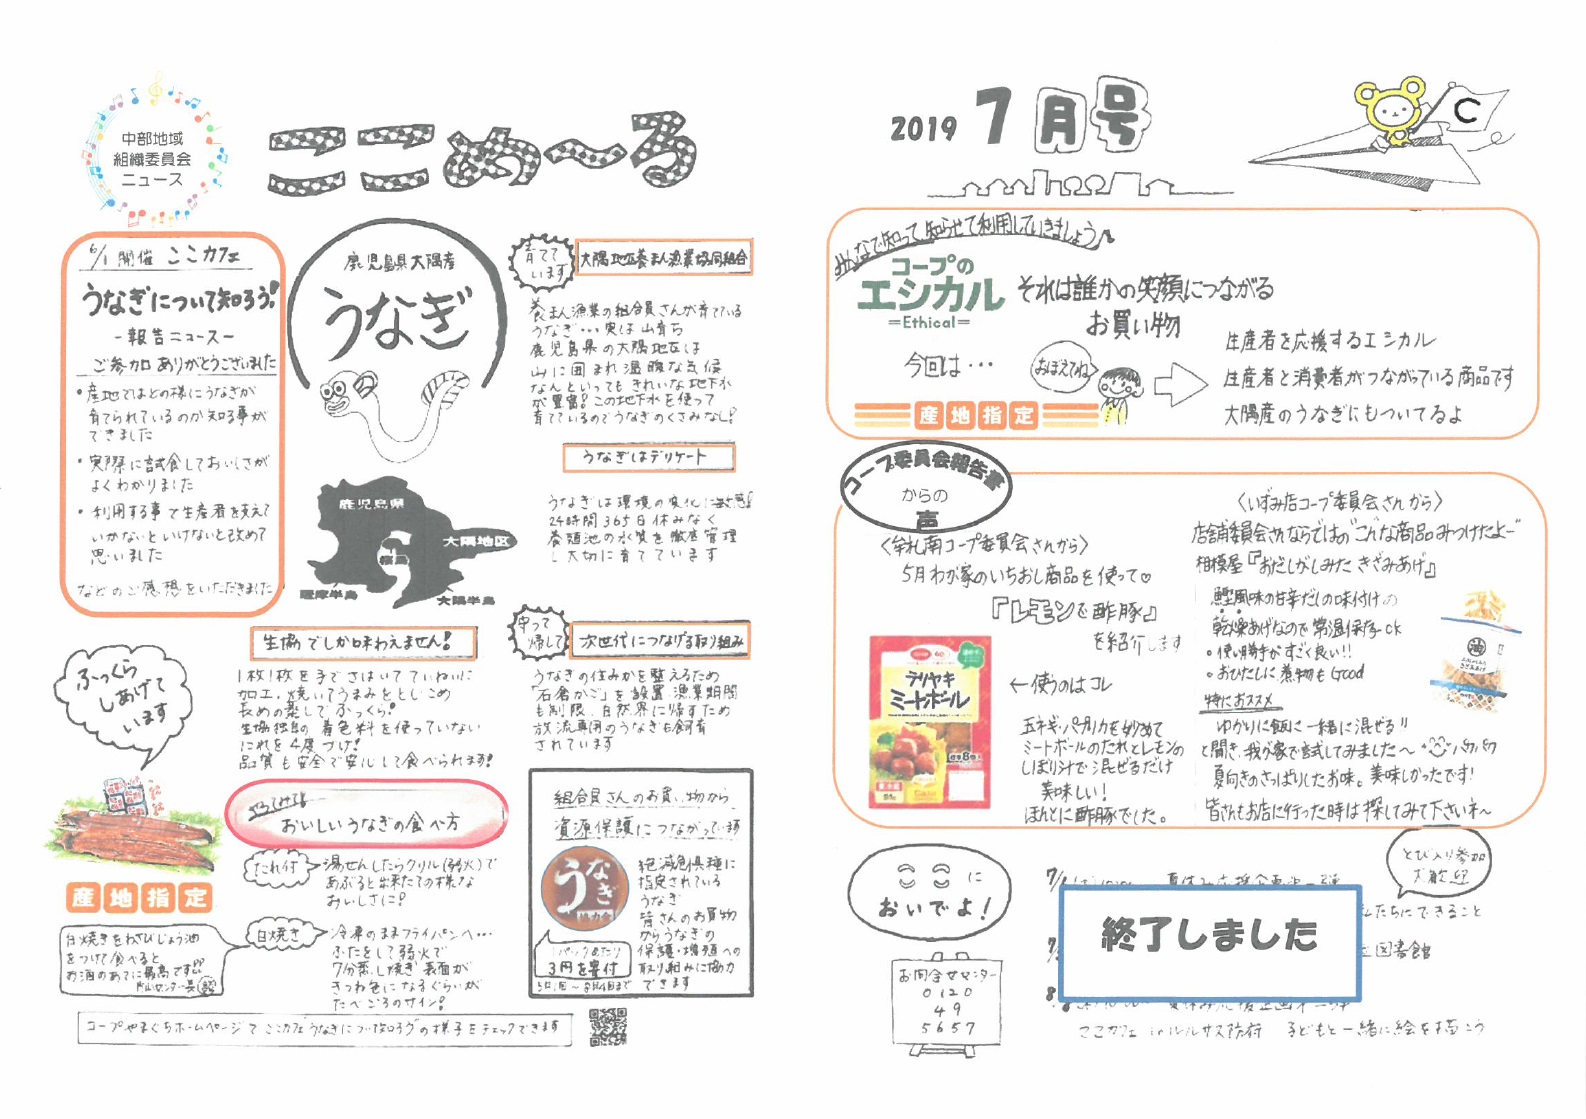 中部地域
組織委員会
ニュース
ここめ〜る
2019 7月号
C
6/1 開催 ここカフェ
うなぎについて知ろう!
-報告ニュース-
ご参加ありがとうございました
・産地ではどの様にうなぎが
育てられているのか知る事が
できました
・実際に試食しておいしさが
よくわかりました
・利用する事で生産者を支えて
いかないといけないと改めて
思いました
などのご感想をいただきました
鹿児島県大隅産
うなぎ
鹿児島県
大隅地区
桜島
薩摩半島
大隅半島
育てて
います
大隅地区養まん漁業協同組合
養まん漁業の組合員さんが育てている
うなぎ…実は山育ち
鹿児島県の大隅地区は
山に囲まれ温暖な気候
なんといってもきれいな地下水
が豊富!この地下水を使って
育てているのでうなぎのくさみなし!
うなぎはデリケート
うなぎは環境の変化に敏感!
24時間365日休みなく
養殖池の水質を徹底管理
し大切に育てています
ふっくら
しあげて
います
生協でしか味わえません!
1枚1枚を手でさばいてていねいに
加工。焼いてうまみをとじこめ
長めの蒸しでふっくら!
生協独自の着色料を使っていない
たれを4度づけ!
品質も安全で安心して食べられます!
守って
帰して
次世代につなげる取り組み
うなぎの住みかを整えるため
「石倉かご」を設置、漁業期間
も制限、自然界に帰すため
放流専用のうなぎも飼育
されています
産地指定
やってみてね
おいしいうなぎの食べ方
たれ付
湯せんしたらグリル(弱火)で
あぶると出来たての様な
おいしさに!
白焼き
冷凍のままフライパンへ…
ふたをして弱火で
7分蒸し焼き 表面が
きつね色になるぐらいが
たべごろのサイン!
白焼きをわさびじょう油
をつけて食べると
お酒のあてに最高です!!
組合員さんのお買い物から
資源保護につながっています
うなぎ
絶滅危惧種に
指定されている
うなぎ
皆さんのお買物
からうなぎの
保護・増殖への
取り組みに協力
できます
1パックあたり
3円を寄付
コープやまぐちホームページで ここカフェ"うなぎについて知ろう"の様子をチェックできます
みんなで知って知らせて利用していきましょう♪
コープの
エシカル
=Ethical=
それは誰かの笑顔につながる
お買い物
今回は…
おぼえてね
産地指定
生産者を応援するエシカル
生産者と消費者がつながっている商品です
大隅産のうなぎにもついてるよ
コープ委員会報告書
からの
声
〈牟礼南コープ委員会さんから〉
5月わが家のいちおし商品を使って♡
『レモンで酢豚』
を紹介します
テリヤキ
ミートボール
←使うのはコレ
玉ネギ・パプリカを炒めて
ミートボールのたれとレモンの
しぼり汁で混ぜるだけ
美味しい!
ほんとに酢豚でした。
〈いずみ店コープ委員会さんから〉
店舗委員会さんならではの"こんな商品みつけたよ"
相模屋『おだしがしみた きざみあげ』
鰹風味の甘辛だしの味付けの
乾燥あげなので常温保存ok
・使い勝手がすごく良い!!
・おひたしに煮物もGood
特におススメ
ゆかりご飯に一緒に混ぜる!!
と聞き、我が家で試してみました〜 パクパク
夏向きのさっぱりしたお味。美味しかったです!
皆さんもお店に行った時は探してみて下さいネ〜
油
に
おいでよ!
お問合せセンター
0120
49
5657
とび入り参加
大歓迎
終了しました
私たちにできること
図書館
ここカフェ inルルサス防府 子どもと一緒に絵を描こう